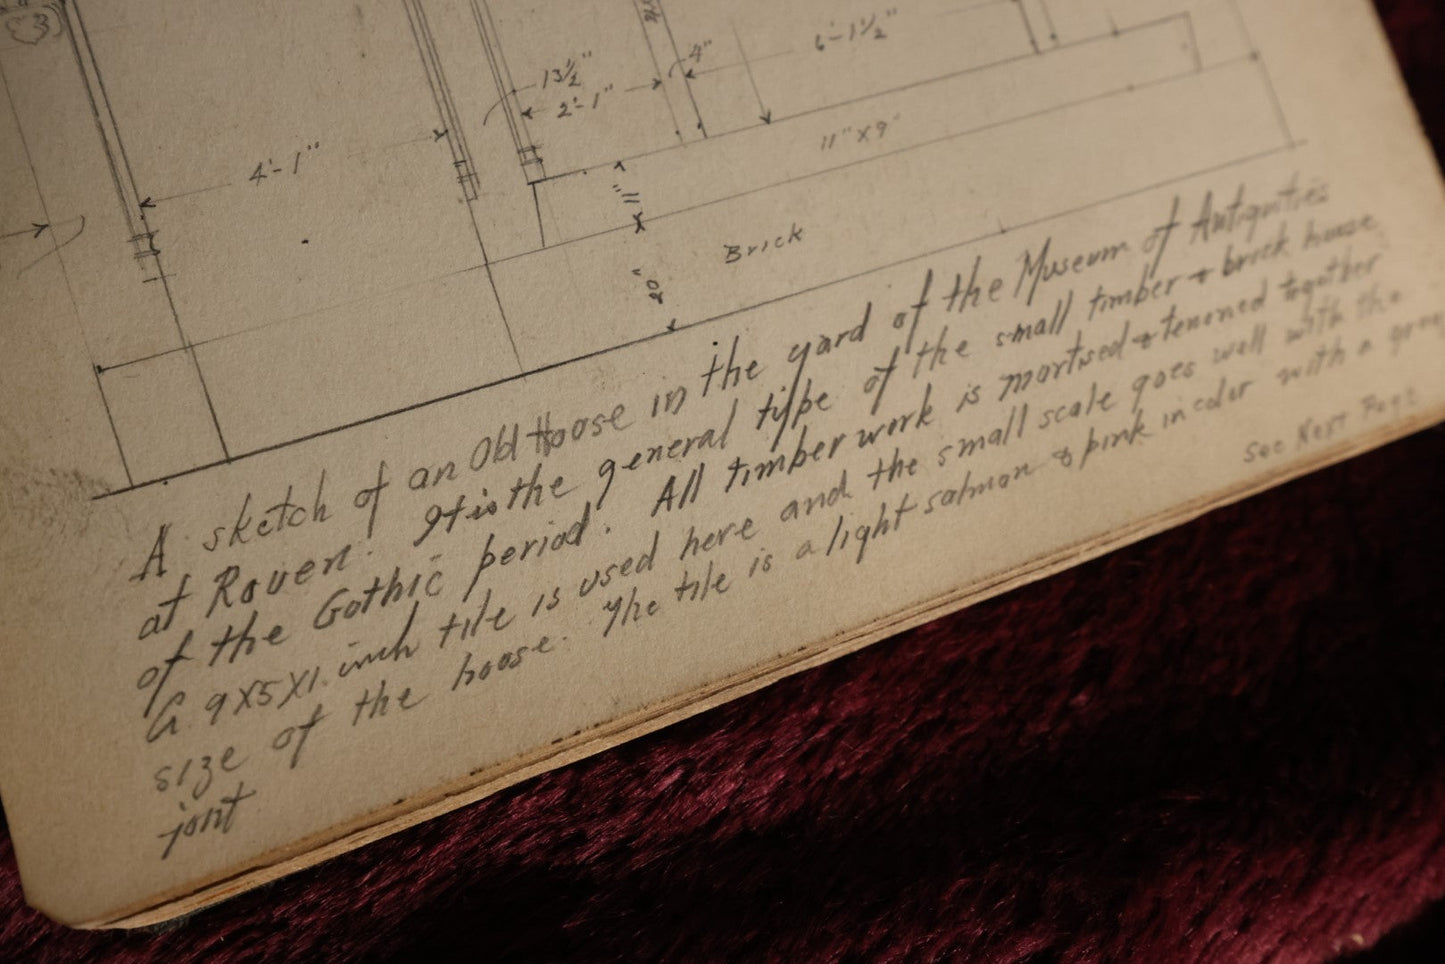 3
4'-1"
13½"
2'-1"
4"
6'-1½"
11" X 9"
11"
Brick
A sketch of an Old House in the yard of the Museum of Antiquities
at Rouen. It is the general type of the small timber & brick house
of the Gothic period. All timber work is mortised & tenoned together
A 9X5X1 inch tile is used here and the small scale goes well with the
size of the house. The tile is a light salmon & pink in color with a
joint
See Next Page